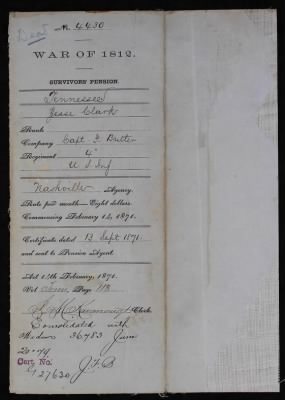 Dead
No. 4430
WAR OF 1812.
SURVIVORS' PENSION.
Tennessee
Jesse Clark
Rank
Company Capt
Regiment 4"
U S Inf
Nashville Agency.
Rate per month—Eight dollars.
Commencing February 14, 1871.
Certificate dated 13 Sept 1871
and sent to Pension Agent
Act 14th February, 1871.
Vol. Page
Clerk.
Consolidated with
Widow 36783 June
20-79
Cert. No.
27630